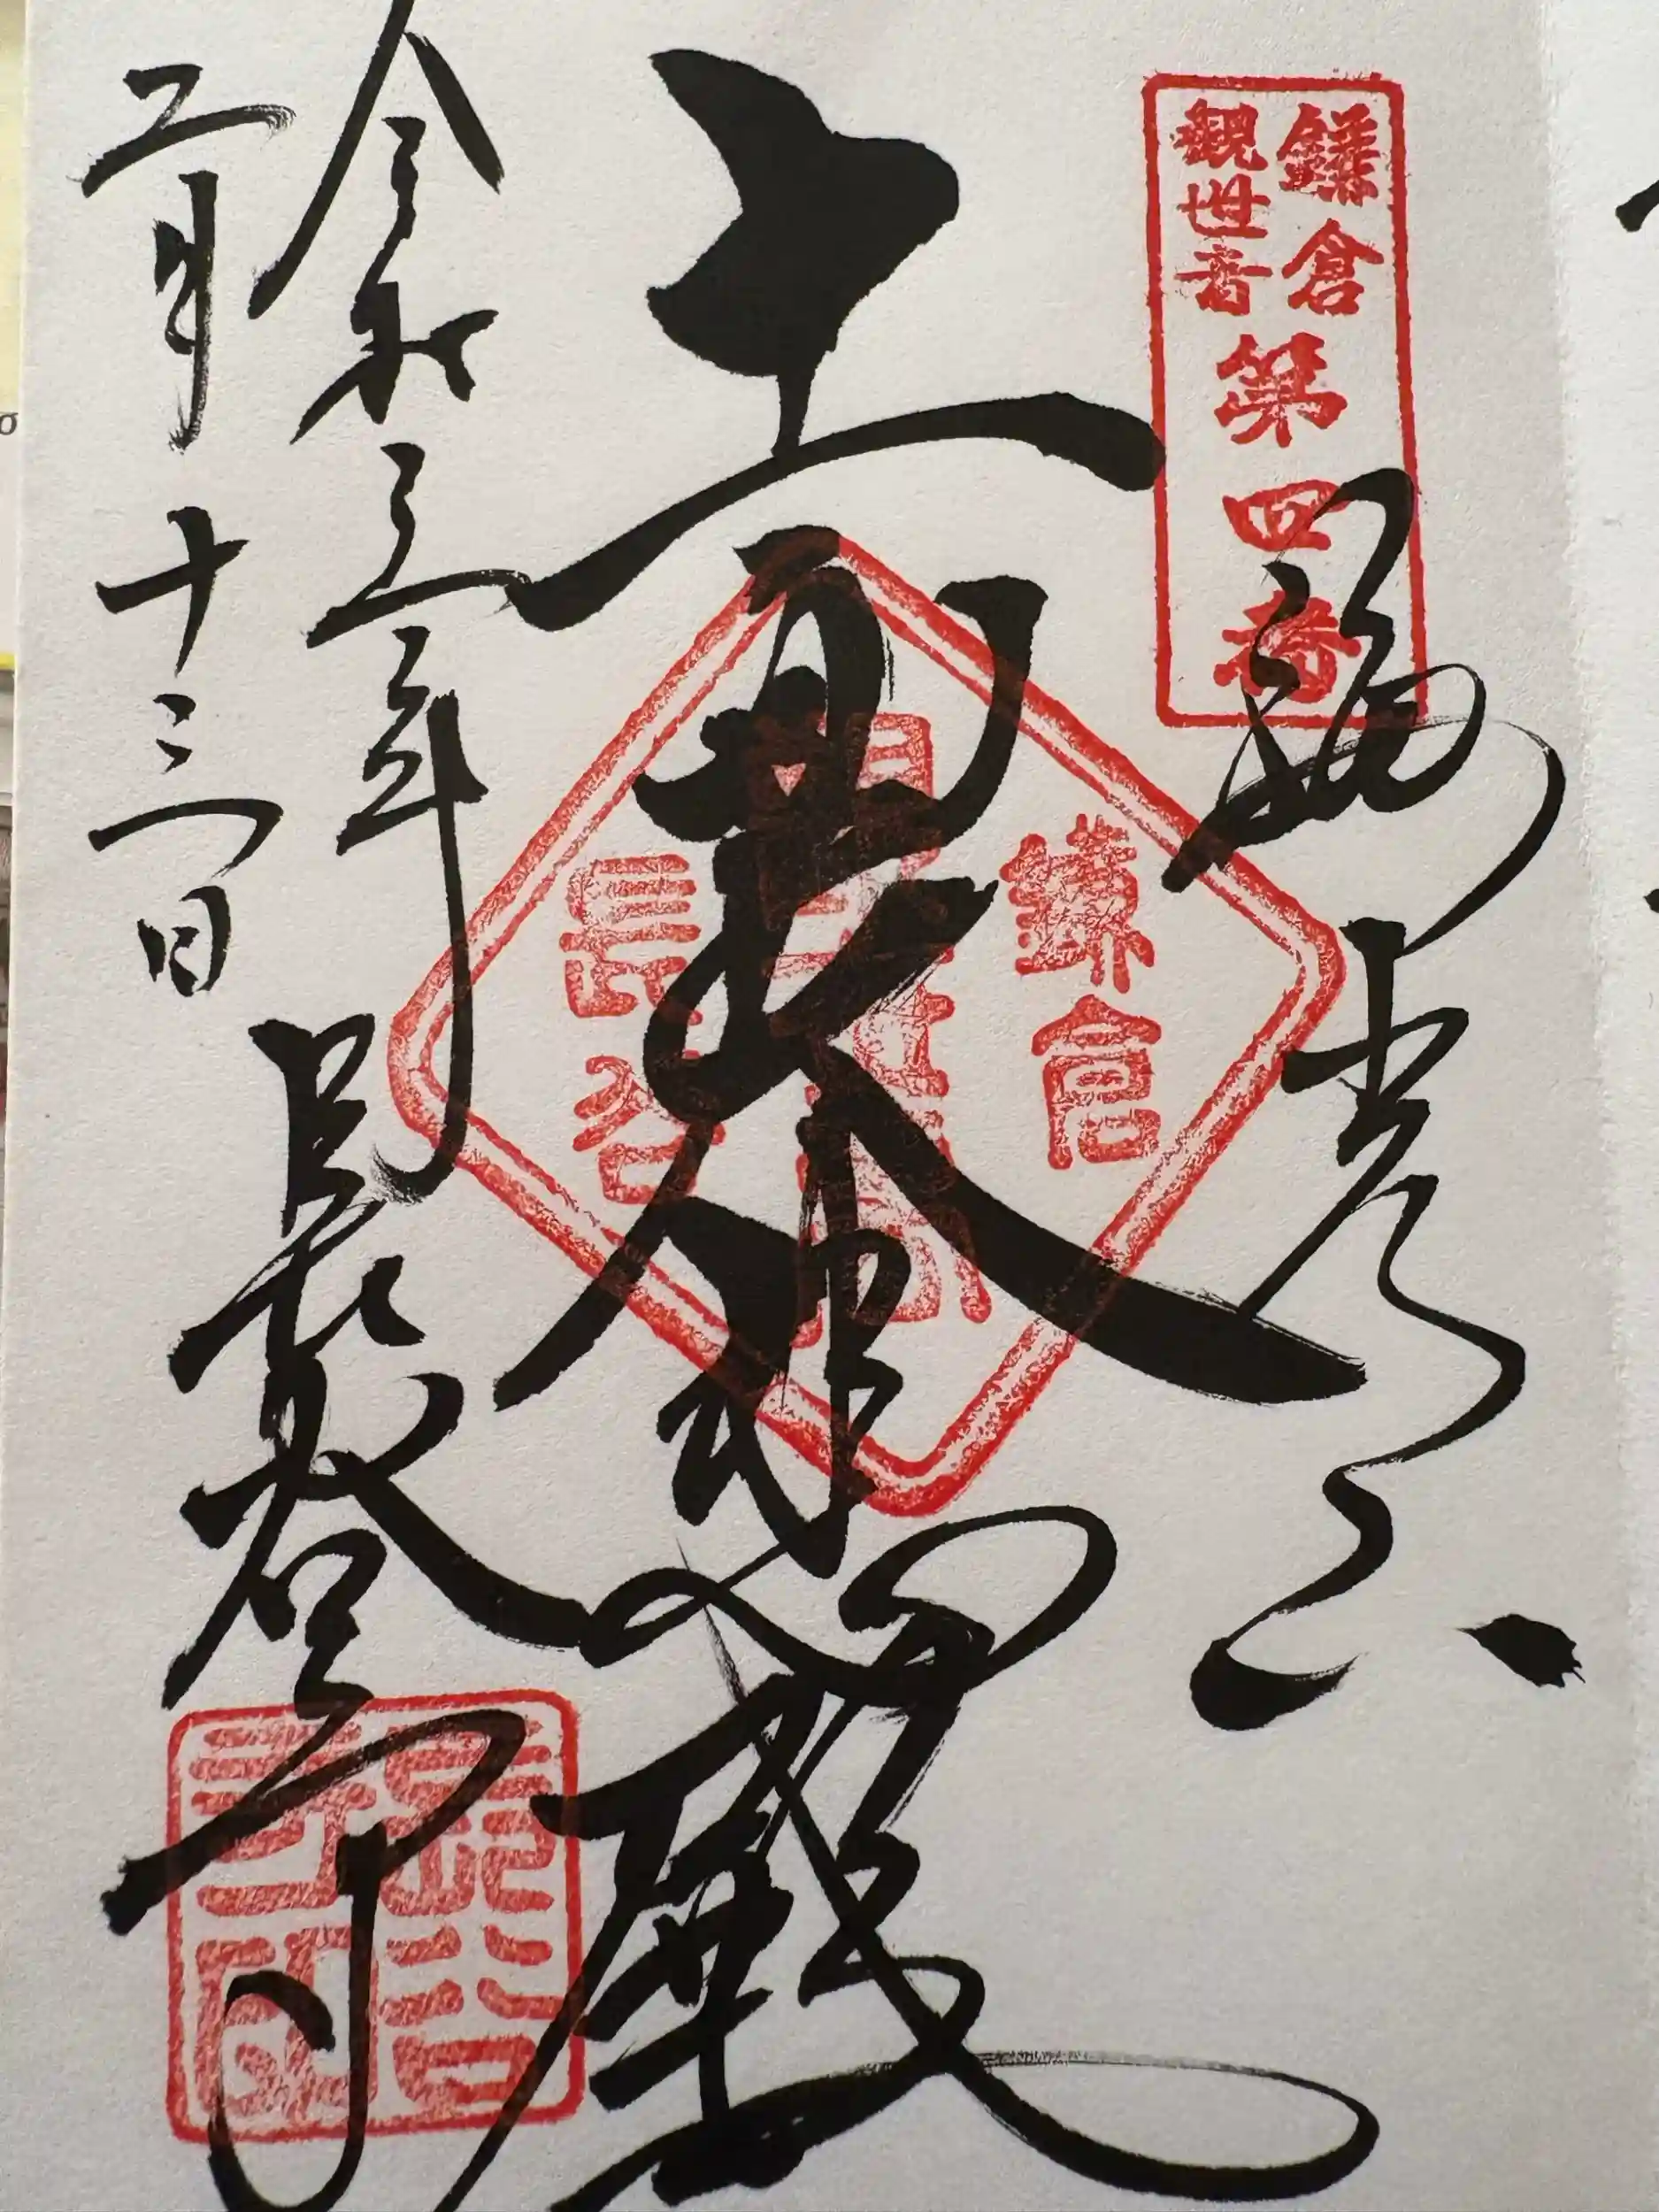 鎌倉
観世音
第四番
海光山
十一面大悲殿
鎌倉
長谷
令和三年
二月十三日
長谷寺
長谷寺印